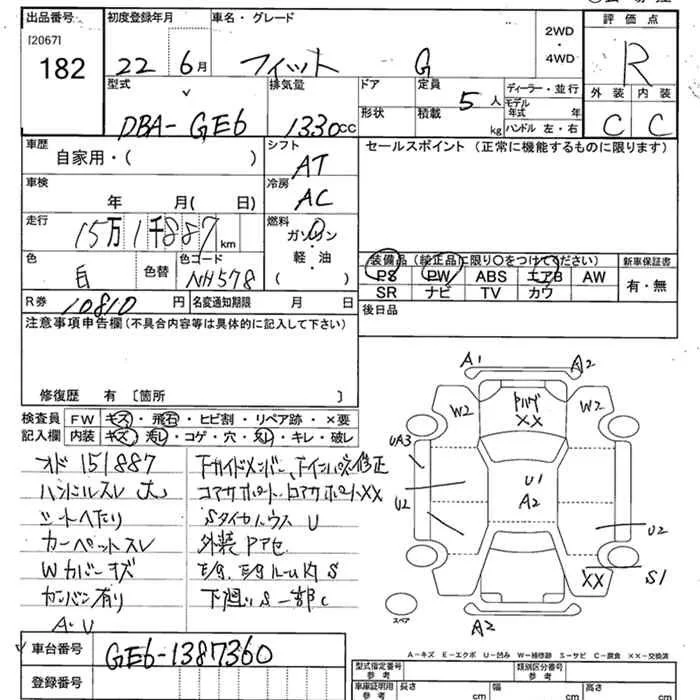 出品番号 初度登録年月 車名・グレード 評価点
[2067] 2WD
182 22 6月 フィット G ・ R
4WD
型式 排気量 ドア 定員 ディーラー・並行 外装 内装
5人 モデル年式 年
DBA-GE6 1330cc 形状 積載 kg ハンドル 左・右 C C
車歴 シフト セールスポイント（正常に機能するものに限ります）
自家用・（ ） AT
車検 冷房
年 月（ 日） AC
走行 燃料
15万1千887km ガソリン
・
軽・油
（ ）
色 色替 色コード 装備品（純正品に限り○をつけてください） 新車保証書
白 NH578 PS PW ABS エアB AW 有・無
SR ナビ TV カワ
R券 10810円 名変通知期限 月 日 後日品
注意事項申告欄（不具合内容等は具体的に記入して下さい）
修復歴 有 〔箇所 〕
検査員 FW キズ・飛石・ヒビ割・リペア跡・×要
記入欄 内装 キズ・汚レ・コゲ・穴・ヌレ・キレ・破レ
オド 151887
ハンドルスレ 大
シートヘたり
カーペットスレ
Wカバーキズ
カンバン有り
A・U
下サイドメンバー、下インパネ修正
コアサポート、ロアサポートXX
Sタイヤハウス U
外装Pアセ
下廻りS一部C
A1 A2
W2 XX W2
UA3
U1
U2 A2 U2
XX S1
スペア
A2
A-キズ E-エクボ U-凹み W-補修跡 S-サビ C-腐食 XX-交換済
車台番号 GE6-1387360
登録番号
型式指定番号 参考 類別区分番号 参考
車庫証明用 参考 長さ cm 幅 cm 高さ cm